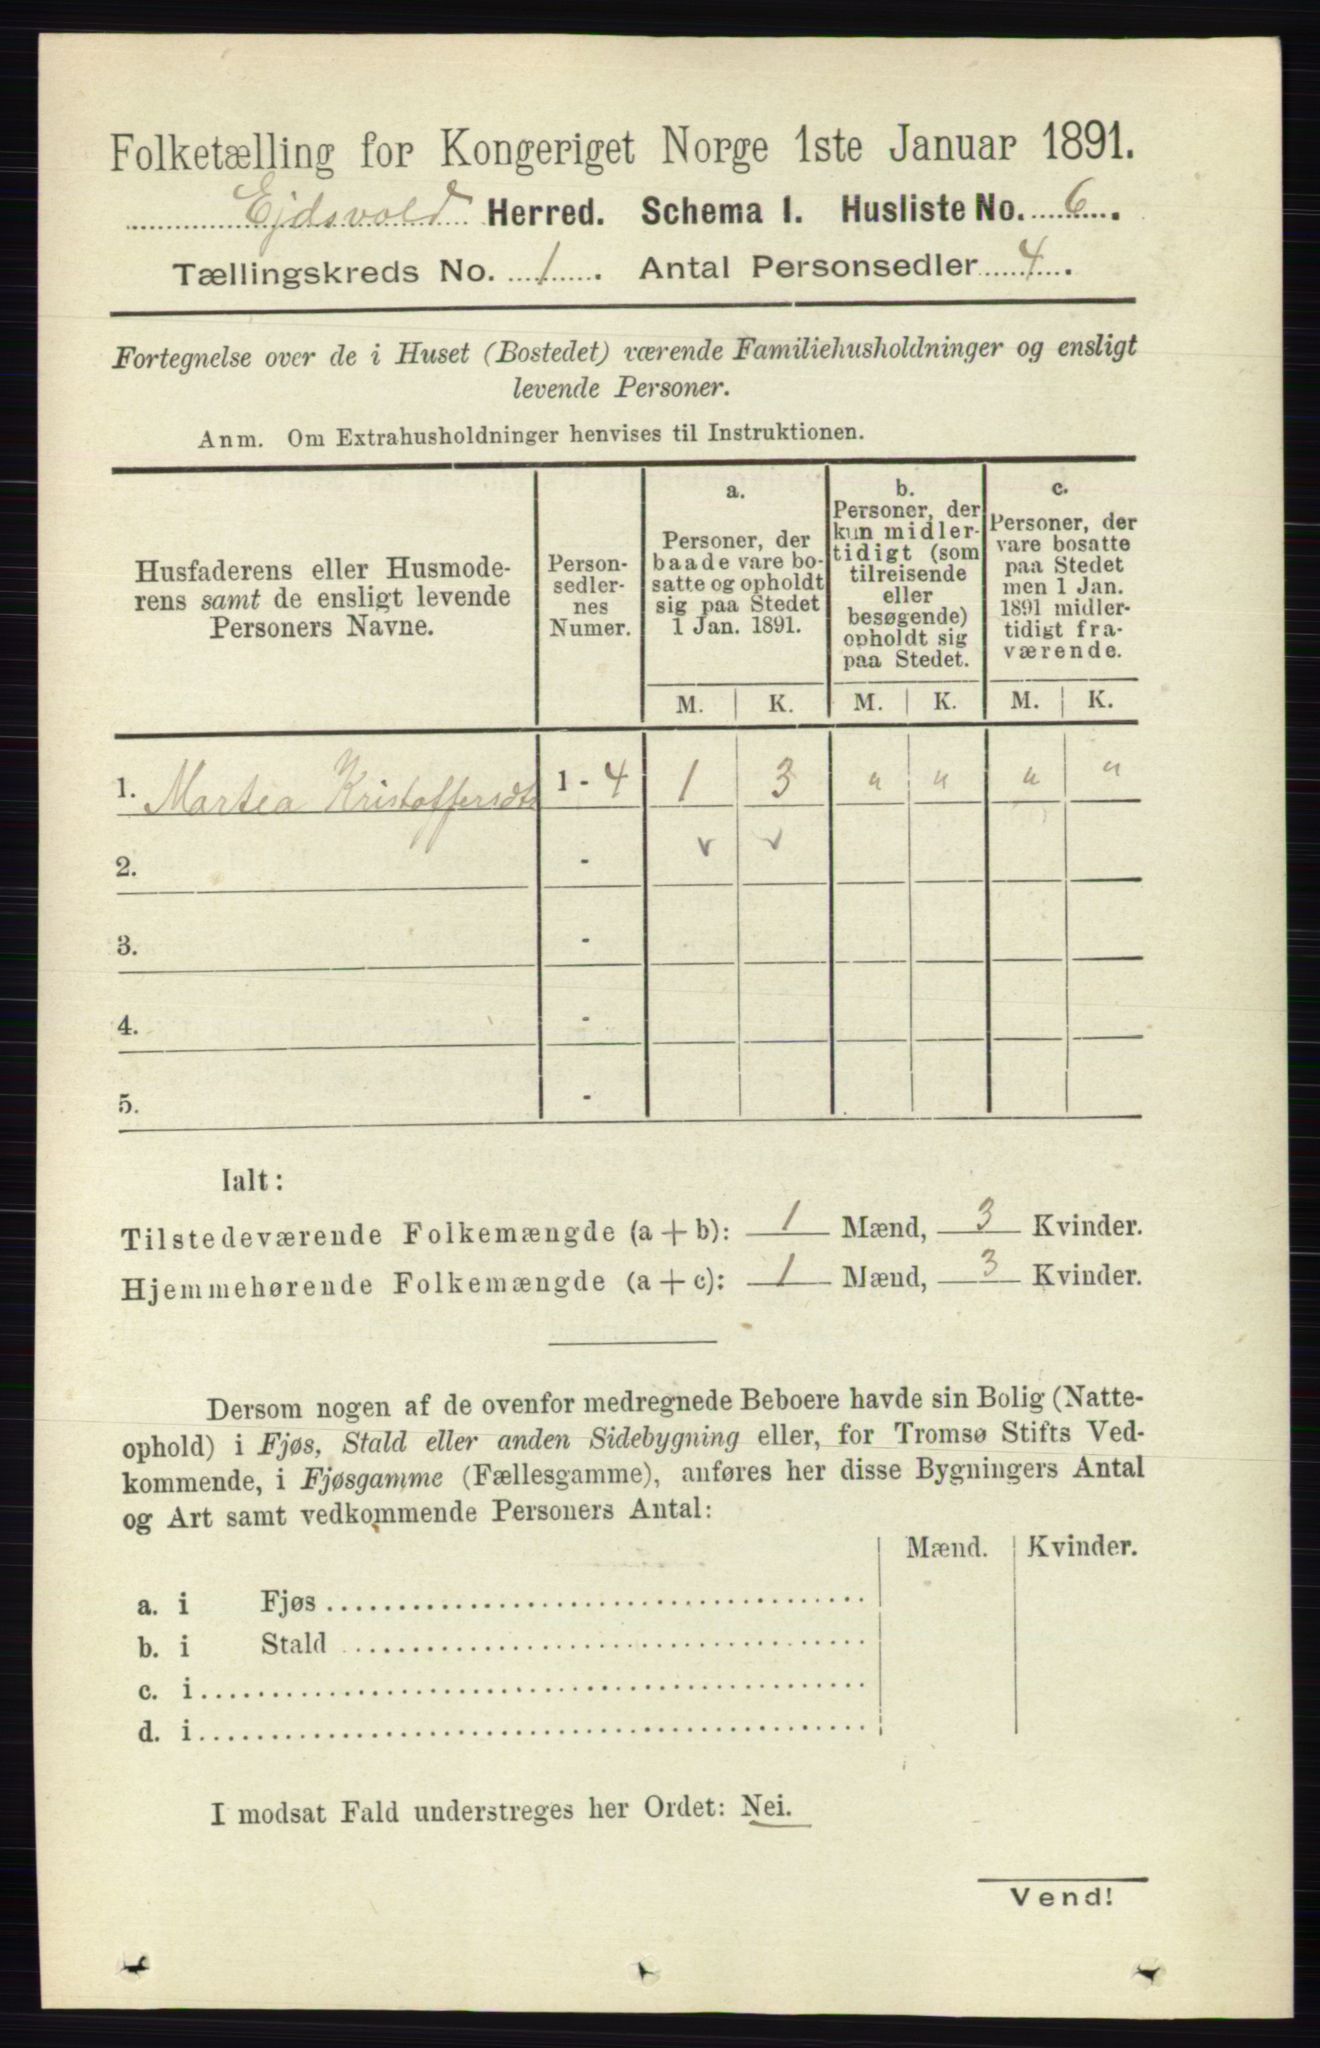 Folketælling for Kongeriget Norge 1ste Januar 1891.
Ejdsvold Herred. Schema I. Husliste No. 6.
Tællingskreds No. 1. Antal Personsedler 4.
Fortegnelse over de i Huset (Bostedet) værende Familiehusholdninger og ensligt
levende Personer.
Anm. Om Extrahusholdninger henvises til Instruktionen.
Husfaderens eller Husmode-
rens samt de ensligt levende
Personers Navne.
Person-
sedler-
nes
Numer.
a.
Personer, der
baade vare bo-
satte og opholdt
sig paa Stedet
1 Jan. 1891.
b.
Personer, der
kun midler-
tidigt (som
tilreisende
eller
besøgende)
opholdt sig
paa Stedet.
c.
Personer, der
vare bosatte
paa Stedet
men 1 Jan.
1891 midler-
tidigt fra-
værende.
M. K. M. K. M. K.
1. Martea Kristoffersdt. 1 - 4 1 3 " " " "
2. - v v
3. -
4. -
5. -
Ialt:
Tilstedeværende Folkemængde (a + b): 1 Mænd, 3 Kvinder.
Hjemmehørende Folkemængde (a + c): 1 Mænd, 3 Kvinder.
Dersom nogen af de ovenfor medregnede Beboere havde sin Bolig (Natte-
ophold) i Fjøs, Stald eller anden Sidebygning eller, for Tromsø Stifts Ved-
kommende, i Fjøsgamme (Fællesgamme), anføres her disse Bygningers Antal
og Art samt vedkommende Personers Antal:
Mænd. Kvinder.
a. i Fjøs
b. i Stald
c. i
d. i
I modsat Fald understreges her Ordet: Nei.
Vend!